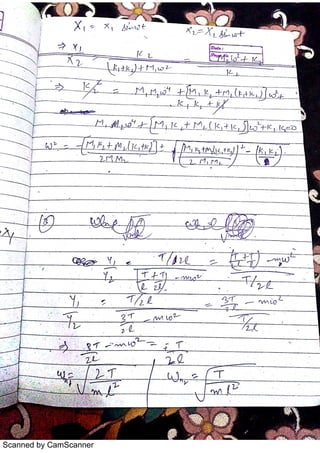 X₁ = x₁ sinωt    X₂ = X₂ sinωt
Date:
⇒ x₁/X₂ = K₂/((k₁+k₂)+M₁ω²) = M₂ω²+K₂/K₂
⇒ K₂² = M₁M₂ω⁴ + [M₁K₂+M₂(k₁+k₂)]ω² +
K₁K₂ + k₂²
M₁M₂ω⁴ + [M₁K₂ + M₂(K₁+K₂)]ω² + K₁K₂=0
ω² = -[M₁K₂+M₂(K₁+K₂)]/2M₁M₂ ±
Y₁/Y₂ = T/2l / [T/l + T/2l - mω²] = (T/l + T/2l) - mω² / T/2l
Y₁/Y₂ = T/2l / (3T/2l - mω²) = 3T/2l - mω² / T/2l
⇒ 3T/2l - mω² = ± T/2l
ωn₁ = √(2T/ml²)    ωn₂ = √(T/ml²)
Scanned by CamScanner